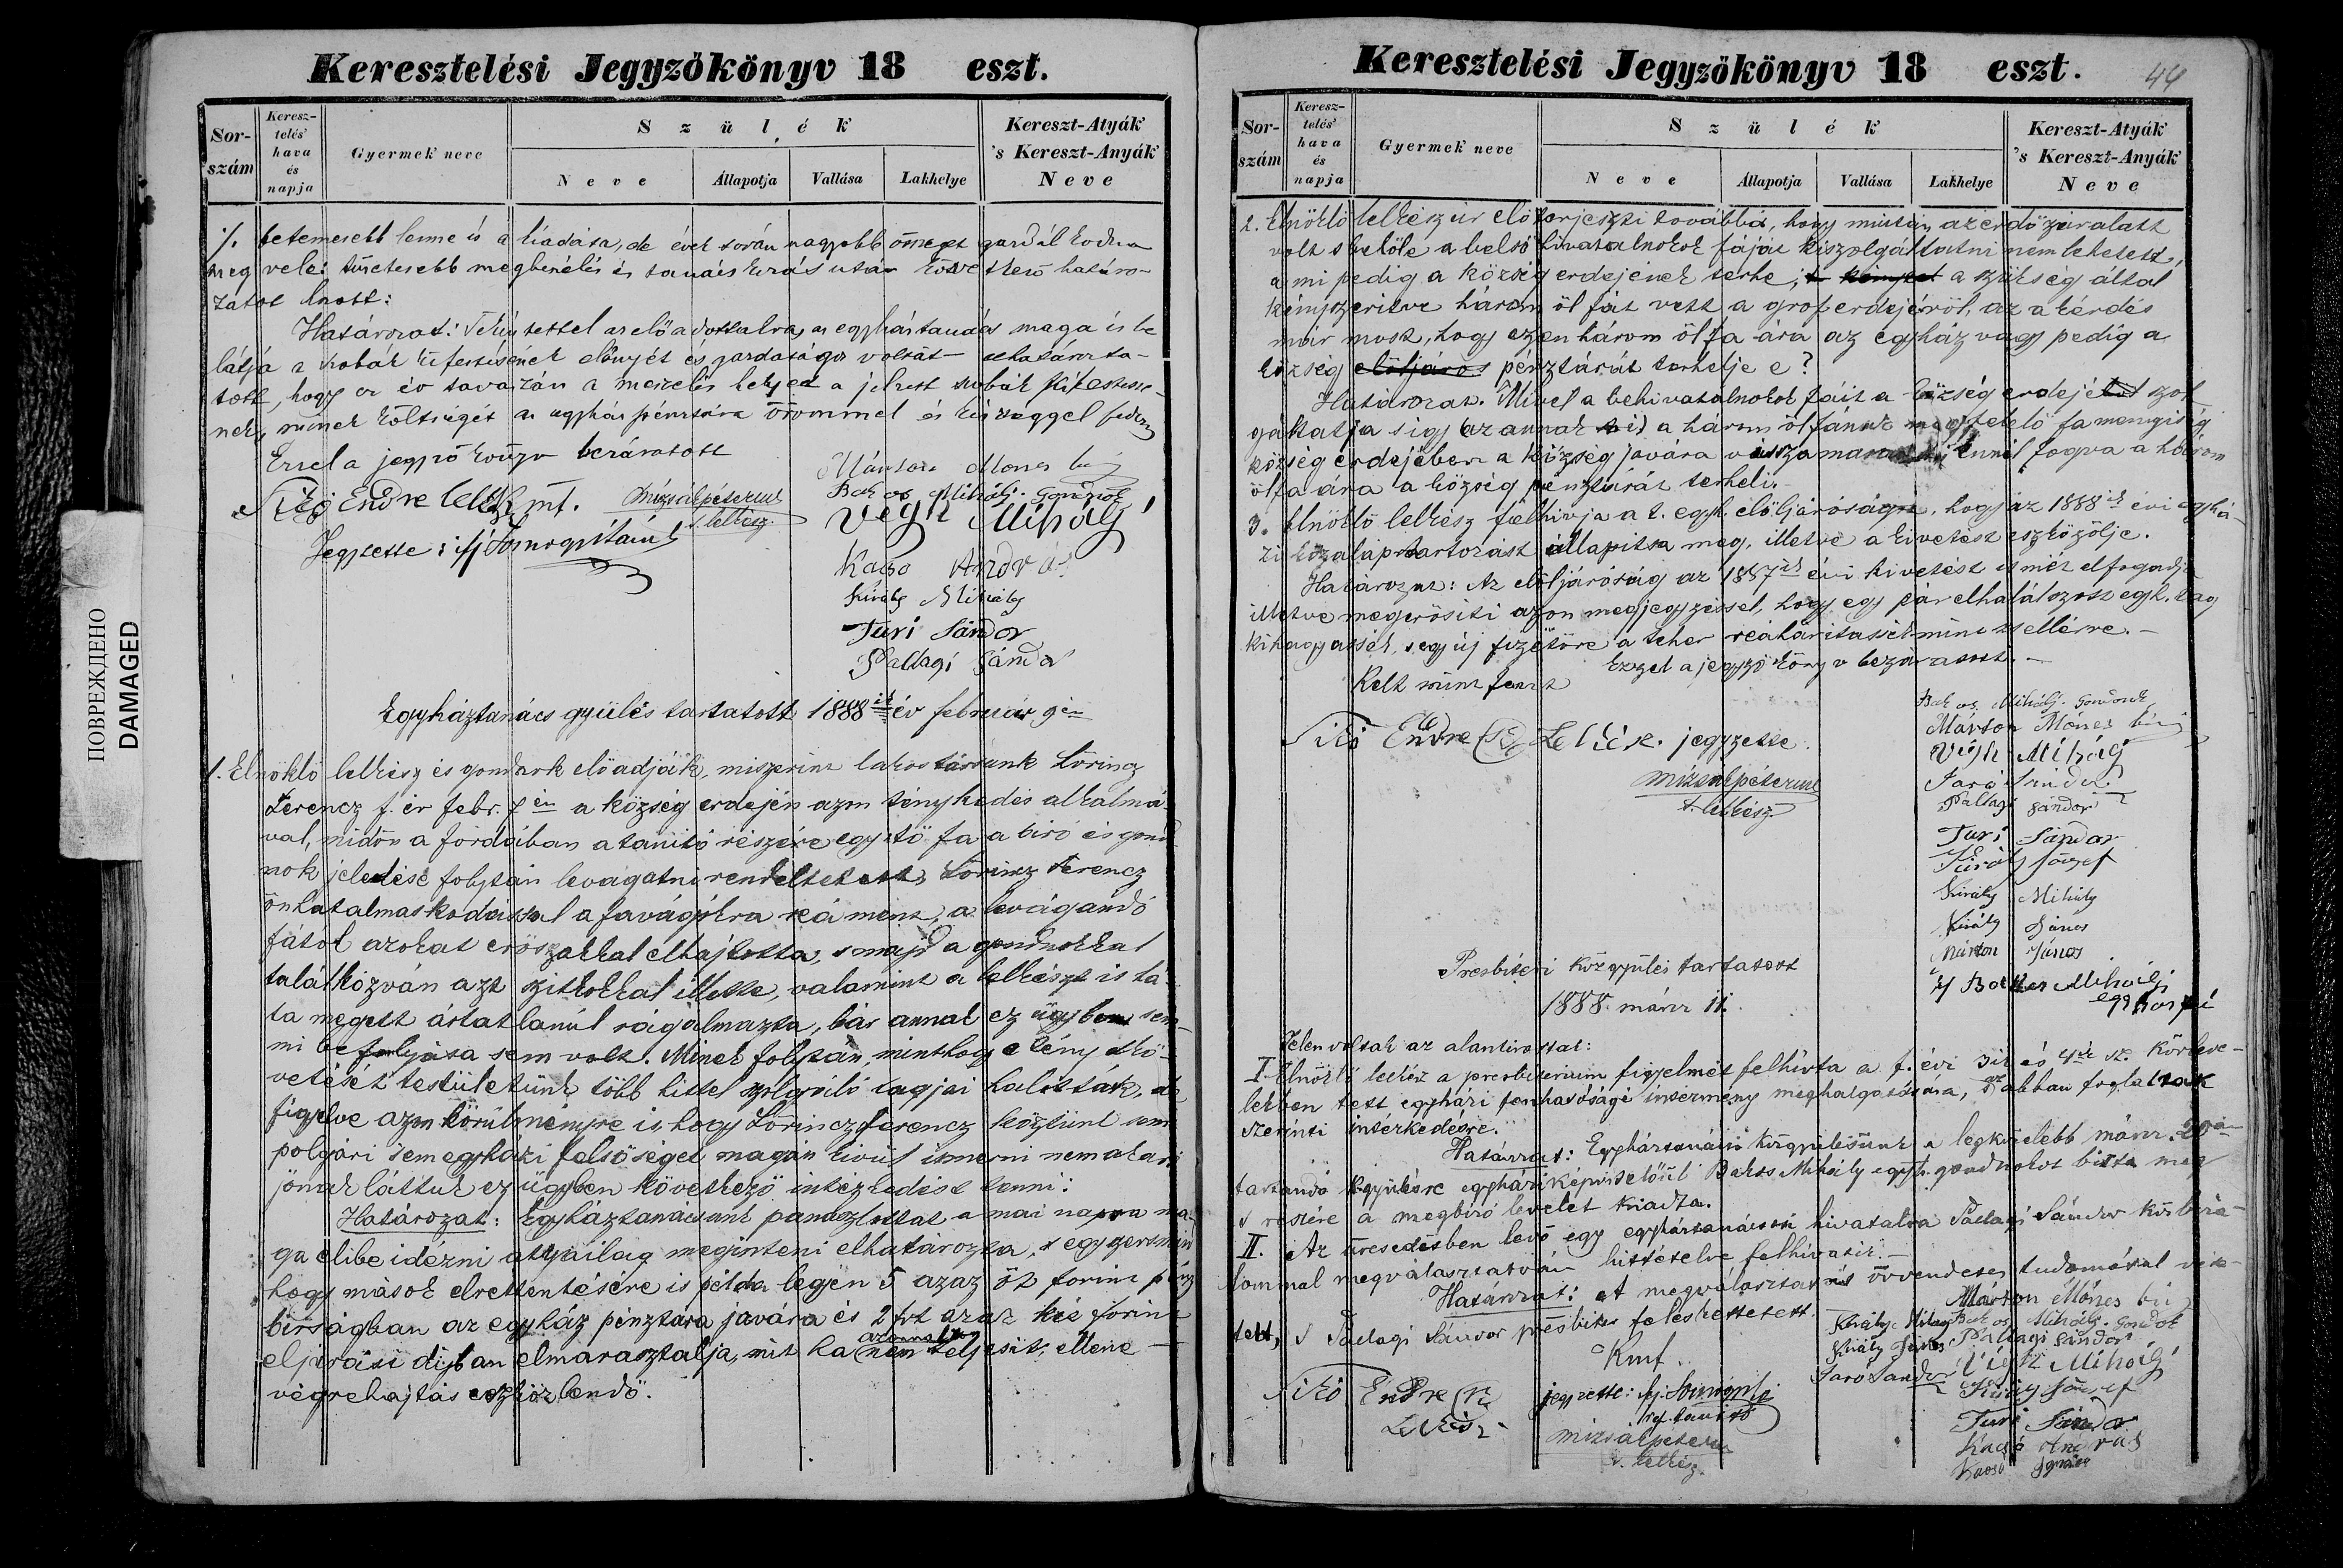 ПОВРЕЖДЕНО
DAMAGED
Keresztelési Jegyzökönyv 18 eszt.
Sor-
szám
Keresz-
telés'
hava
és
napja
Gyermek neve
Szülék
Neve
Állapotja
Vallása
Lakhelye
Kereszt-Atyák
's Kereszt-Anyák
Neve
betemesebb lenne is a kiadása, de évek során nagyobb
meg vele: tüzetesebb megbeszélés és után következő határo-
zatot hozott:
Határozat: az egyháztanács maga is be
látja a szobák kifestésének előnyét és voltát elhatározta-
tott, hogy ez év tavaszán a meszelés helyett a jelzett szobák kifestesse-
nek, minek költségét az egyház pénztára örömmel és készséggel
Ezzel a jegyzőkönyv bezáratott
Sikó Endre lelk. mt. Mizsák Péter
s. lelkész.
Márton Mónes biró
Bakos Mihály Gondnok
Végh Mihály
Jegyzette: ifj Somogyi
Kacsó András
Király Mihály
Turi Sándor
Pallagi Sándor
Egyháztanács gyülés tartatott 1888ik év februar 9én
1. Elnöklő lelkész és gondnok előadják, miszerint lakostársunk Lörincz
Ferencz f. év febr. 7én a község erdején azon ténykedés alkalmá-
val, midőn a fordában a tanító részére egy tö fa a biró és gond
nok jeledése folytán levágatni rendeltetett, Lörincz Ferencz
önhatalmaskodással a favágókra reá ment, a levágandó
fától azokat erőszakkal elhajtotta, s majd a gondnokkal
találkozván azt szitkokkal illette, valamint a lelkészt is há-
ta megett ártatlanúl rágalmazta, bár annak ez ügyben sem-
mi befolyása sem volt. Minek folytán, minthogy e tény elkö-
vetését testületünk több hittel szolgáló tagjai hallották, de
figyelve azon körülményre is, hogy Lörincz Ferencz köztünk sem
polgári sem egyházi felsőséget magán kivül ismerni nem akar:
jónak láttuk ez ügyben következő intézkedést tenni:
Határozat: Egyháztanácsunk panaszlottat a mai napra ma-
ga elibe idézni atyailag meginteni elhatározta, s egyszersmind
hogy mások elrettentésére is példa legyen 5 azaz öt forint pénz
birságban az egyház pénztára javára és 2 frt azaz két forint
eljárási dijban elmarasztalja, mit ha azonnal nem teljesit, ellene
végrehajtás eszközlendő.
Keresztelési Jegyzökönyv 18 eszt.
44
Sor-
szám
Keresz-
telés'
hava
és
napja
Gyermek neve
Szülék
Neve
Állapotja
Vallása
Lakhelye
Kereszt-Atyák
's Kereszt-Anyák
Neve
2. Elnöklő lelkész úr előterjeszti továbbá, hogy miután az erdő zár alatt
volt s belőle a belső hivatalnokok fáját kiszolgáltatni nem lehetett,
a mi pedig a község erdejének terhe; a szükség által
kényszeritve három öl fát vett a grof erdejéről, az a kérdés
már most, hogy ezen három öl fa ára az egyház vagy pedig a
község előljáros pénztárát terhelje e?
Határozat. Mivel a behivatalnokok fáit a község erdejé szol
gáltatja s igy az annak a három öl fának megfelelő famenyiség
község erdejében a község javára vissza marad ennél fogva a három
öl fa ára a község pénztárát terheli.
3. Elnöklő lelkész felhivja a t. egyh. előljáróságot, hogy az 1888ik évi egyhá-
zi közalaptartozást állapitsa meg, illetve a kivetést eszközölje.
Határozat: Az előljáróság az 1887ik évi kivetést ismét elfogadja
illetve megerősiti azon megjegyzéssel, hogy egy pár elhalálozott egyh. tag
kihagyassék, s egy új fizetőre a teher reáháritassék mint zsellérre. –
Ezzel a jegyzőkönyv bezáratott. –
Kelt mint fent
Bakos Mihály Gondnok
Sikó Endre Lelkész. jegyzette.
Márton Mónes biró
Végh Mihály
Mizsák Péter
s. lelkész
Jaró Sándor
Pallagi Sándor
Turi Sándor
Király József
Király Mihály
Király János
Márton János
Presbiteri közgyülés tartatott
1888. márcz 11.
Jelen voltak az alantirottak:
I. Elnöklő lelkész a presbiterium figyelmét felhivta a f. évi 3ik és 4ik sz. Körleve-
lekben tett egyházi fenhatósági intézmény meghalgatására, s az abban foglaltak
szerinti intézkedésre.
Határozat: Egyháztanácsi közgyülésünk a legközelebb márcz. 20án
tartandó közgyülésre egyházi képviselőül Bakos Mihály egyh. gondnokot bizta meg
s részére a megbizó levelet kiadta.
II. Az üresedésben levő egy egyháztanácsosi hivatalra Pallagi Sándor közbizo-
lommal megválasztatván hittételre felhivatik. –
Határozat: A megválasztatás örvendetes tudomásul vé-
tett, s Pallagi Sándor presbiter feleskettetett.
Kmf.
Márton Mónes biró
Bakos Mihály Gondnok
Király Mihály
Pallagi Sándor
Király János
Végh Mihály
Jaró Sándor
Király József
Sikó Endre
Lelkész
jegyzette: ifj. Somogyi
ref. tanító
Turi Sándor
Mizsák Péter
s. lelkész.
Kacsó András
Kacsó Ignácz